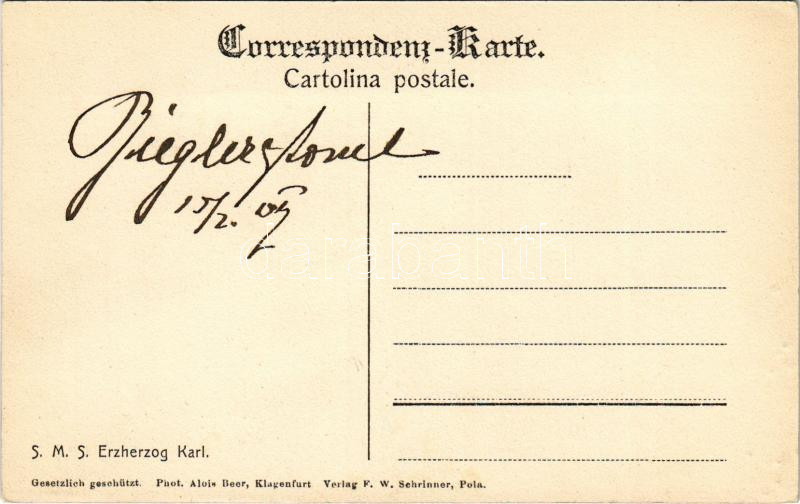 Correspondenz-Karte.
Cartolina postale.
15/2. 07
S. M. S. Erzherzog Karl.
Gesetzlich geschützt. Phot. Alois Beer, Klagenfurt Verlag F. W. Schrinner, Pola.
darabanth